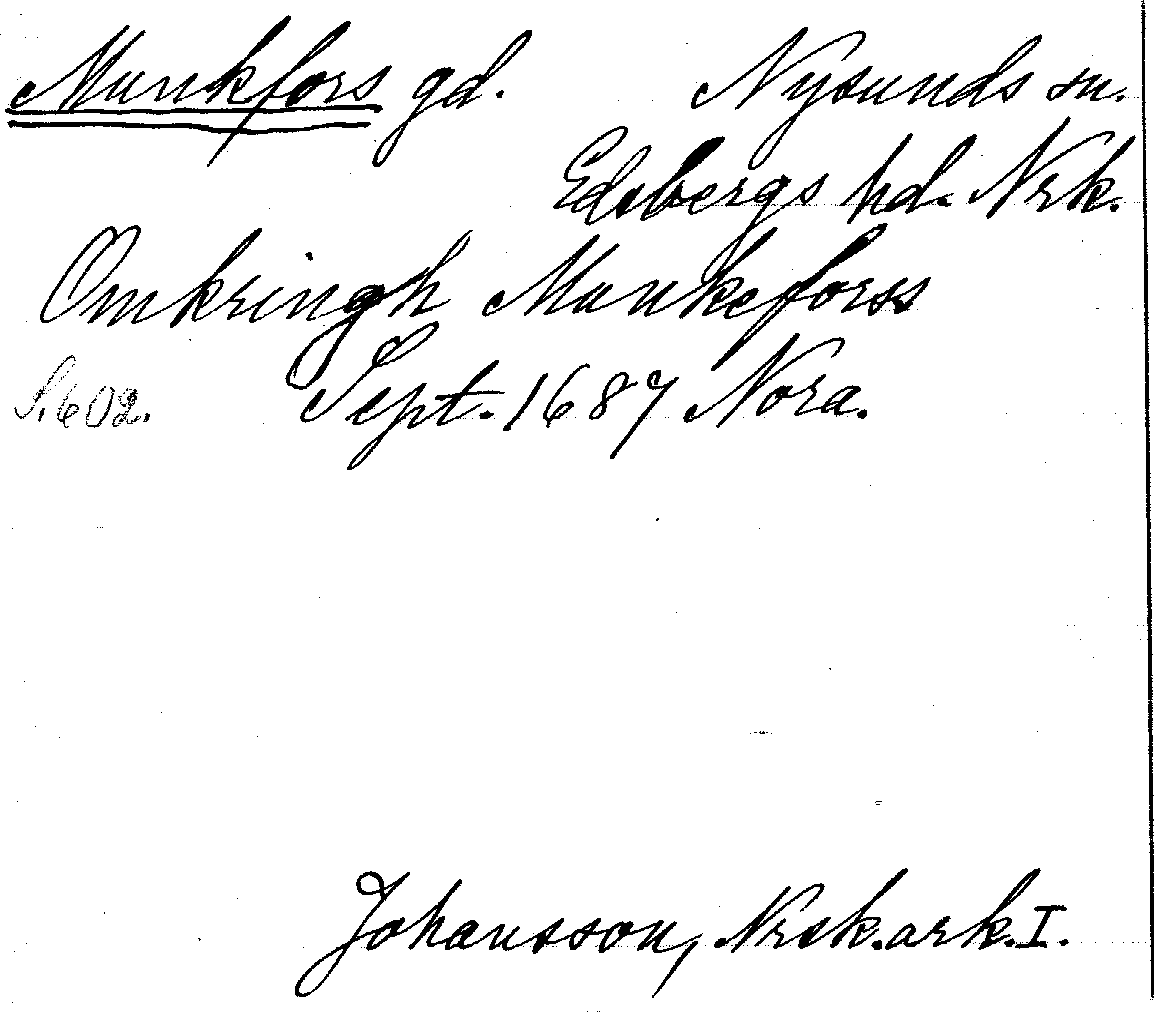 Munkfors gd. Nysunds sn.
Edsbergs hd. Nrk.
Omkringh Munkeforss
S. 602. Sept. 1687 Nora.
Johansson, Nrsk. ark. I.